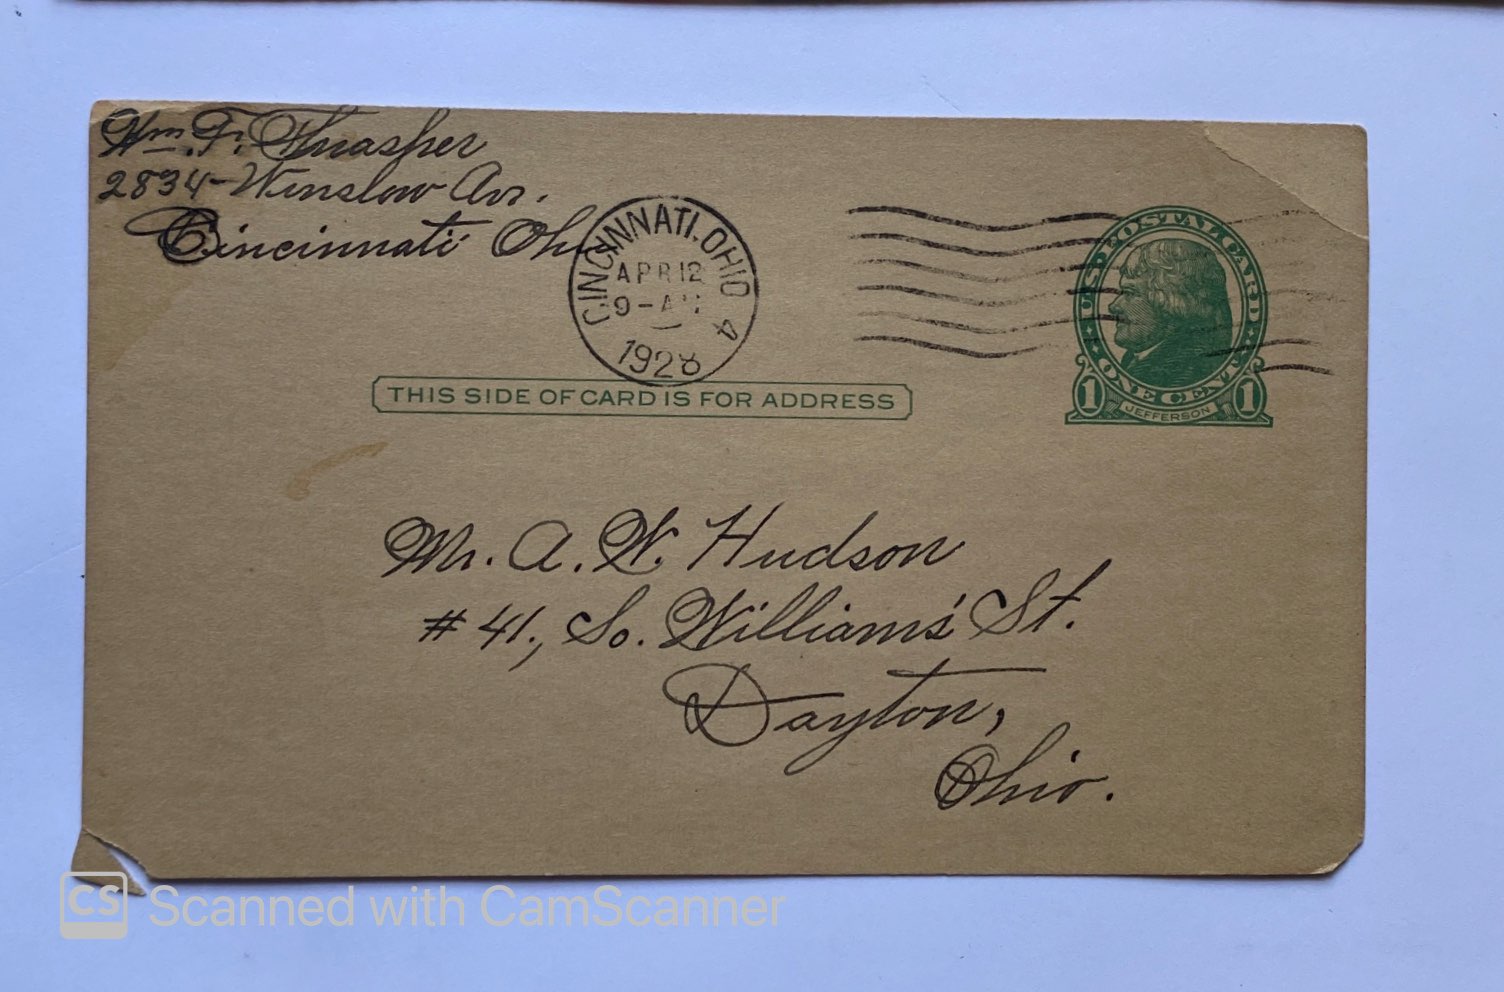 Wm. F. Thrasher
2834 - Winslow Ave.
Cincinnati Ohio
CINCINNATI, OHIO 4
APR 12
9 - AM
1928
U.S. POSTAL CARD
ONE CENT
1 JEFFERSON 1
THIS SIDE OF CARD IS FOR ADDRESS
Mr. A. W. Hudson
# 41, So. Williams' St.
Dayton,
Ohio.
CS Scanned with CamScanner